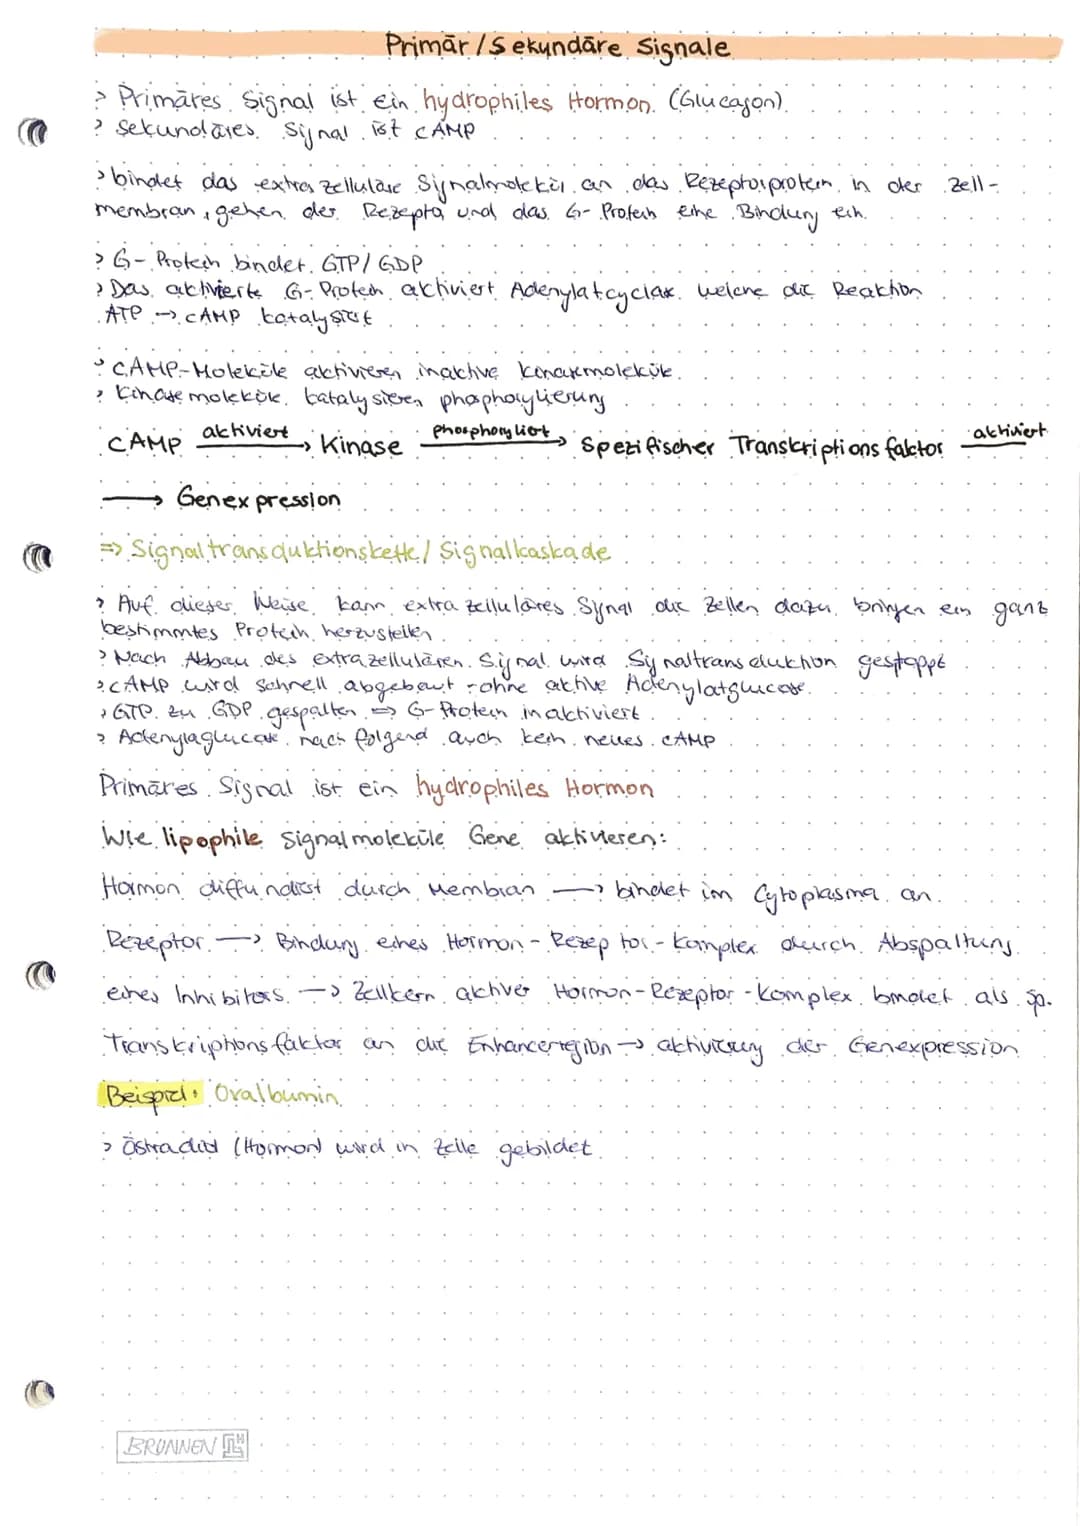 Primär/Sekundäre Signale
> Primäres Signal ist ein hydrophiles Hormon (Glucagon)
> Sekundäres Signal ist cAMP
> bindet das extrazelluläre Signalmolekül an das Rezeptorprotein in der Zell-
membran, gehen der Rezeptor und das G-Protein eine Bindung ein.
> G-Protein bindet GTP/GDP
> Das aktivierte G-Protein aktiviert Adenylatcyclax welche die Reaktion
ATP → cAMP katalysiert
> cAMP-Moleküle aktivieren inaktive Kinasemoleküle
> Kinasemoleküle katalysieren phosphorylierung
cAMP aktiviert → Kinase phosphoryliert → Spezifischer Transkriptionsfaktor aktiviert
→ Genexpression
=> Signaltransduktionskette/Signalkaskade
> Auf dieser Weise kann extrazelluläres Signal die Zellen dazu bringen ein ganz
bestimmtes Protein herzustellen
> Nach Abbau des extrazellulären Signal wird Signaltransduktion gestoppt
> cAMP wird schnell abgebaut - ohne aktive Adenylatglucose
> GTP zu GDP gespalten => G-Protein inaktiviert
> nach folgend auch kein neues cAMP
Primäres Signal ist ein hydrophiles Hormon
Wie lipophile Signalmoleküle Gene aktivieren:
Hormon diffundiert durch Membran → bindet im Cytoplasma an
Rezeptor → Bindung eines Hormon-Rezeptor-Komplex durch Abspaltung
eines Inhibitors → Zellkern aktiver Hormon-Rezeptor-Komplex bindet als sp.
Transkriptionsfaktor an die Enhancerregion → aktivierung der Genexpression
Beispiel: Ovalbumin
> Östradiol (Hormon) wird in Zelle gebildet
BRUNNEN